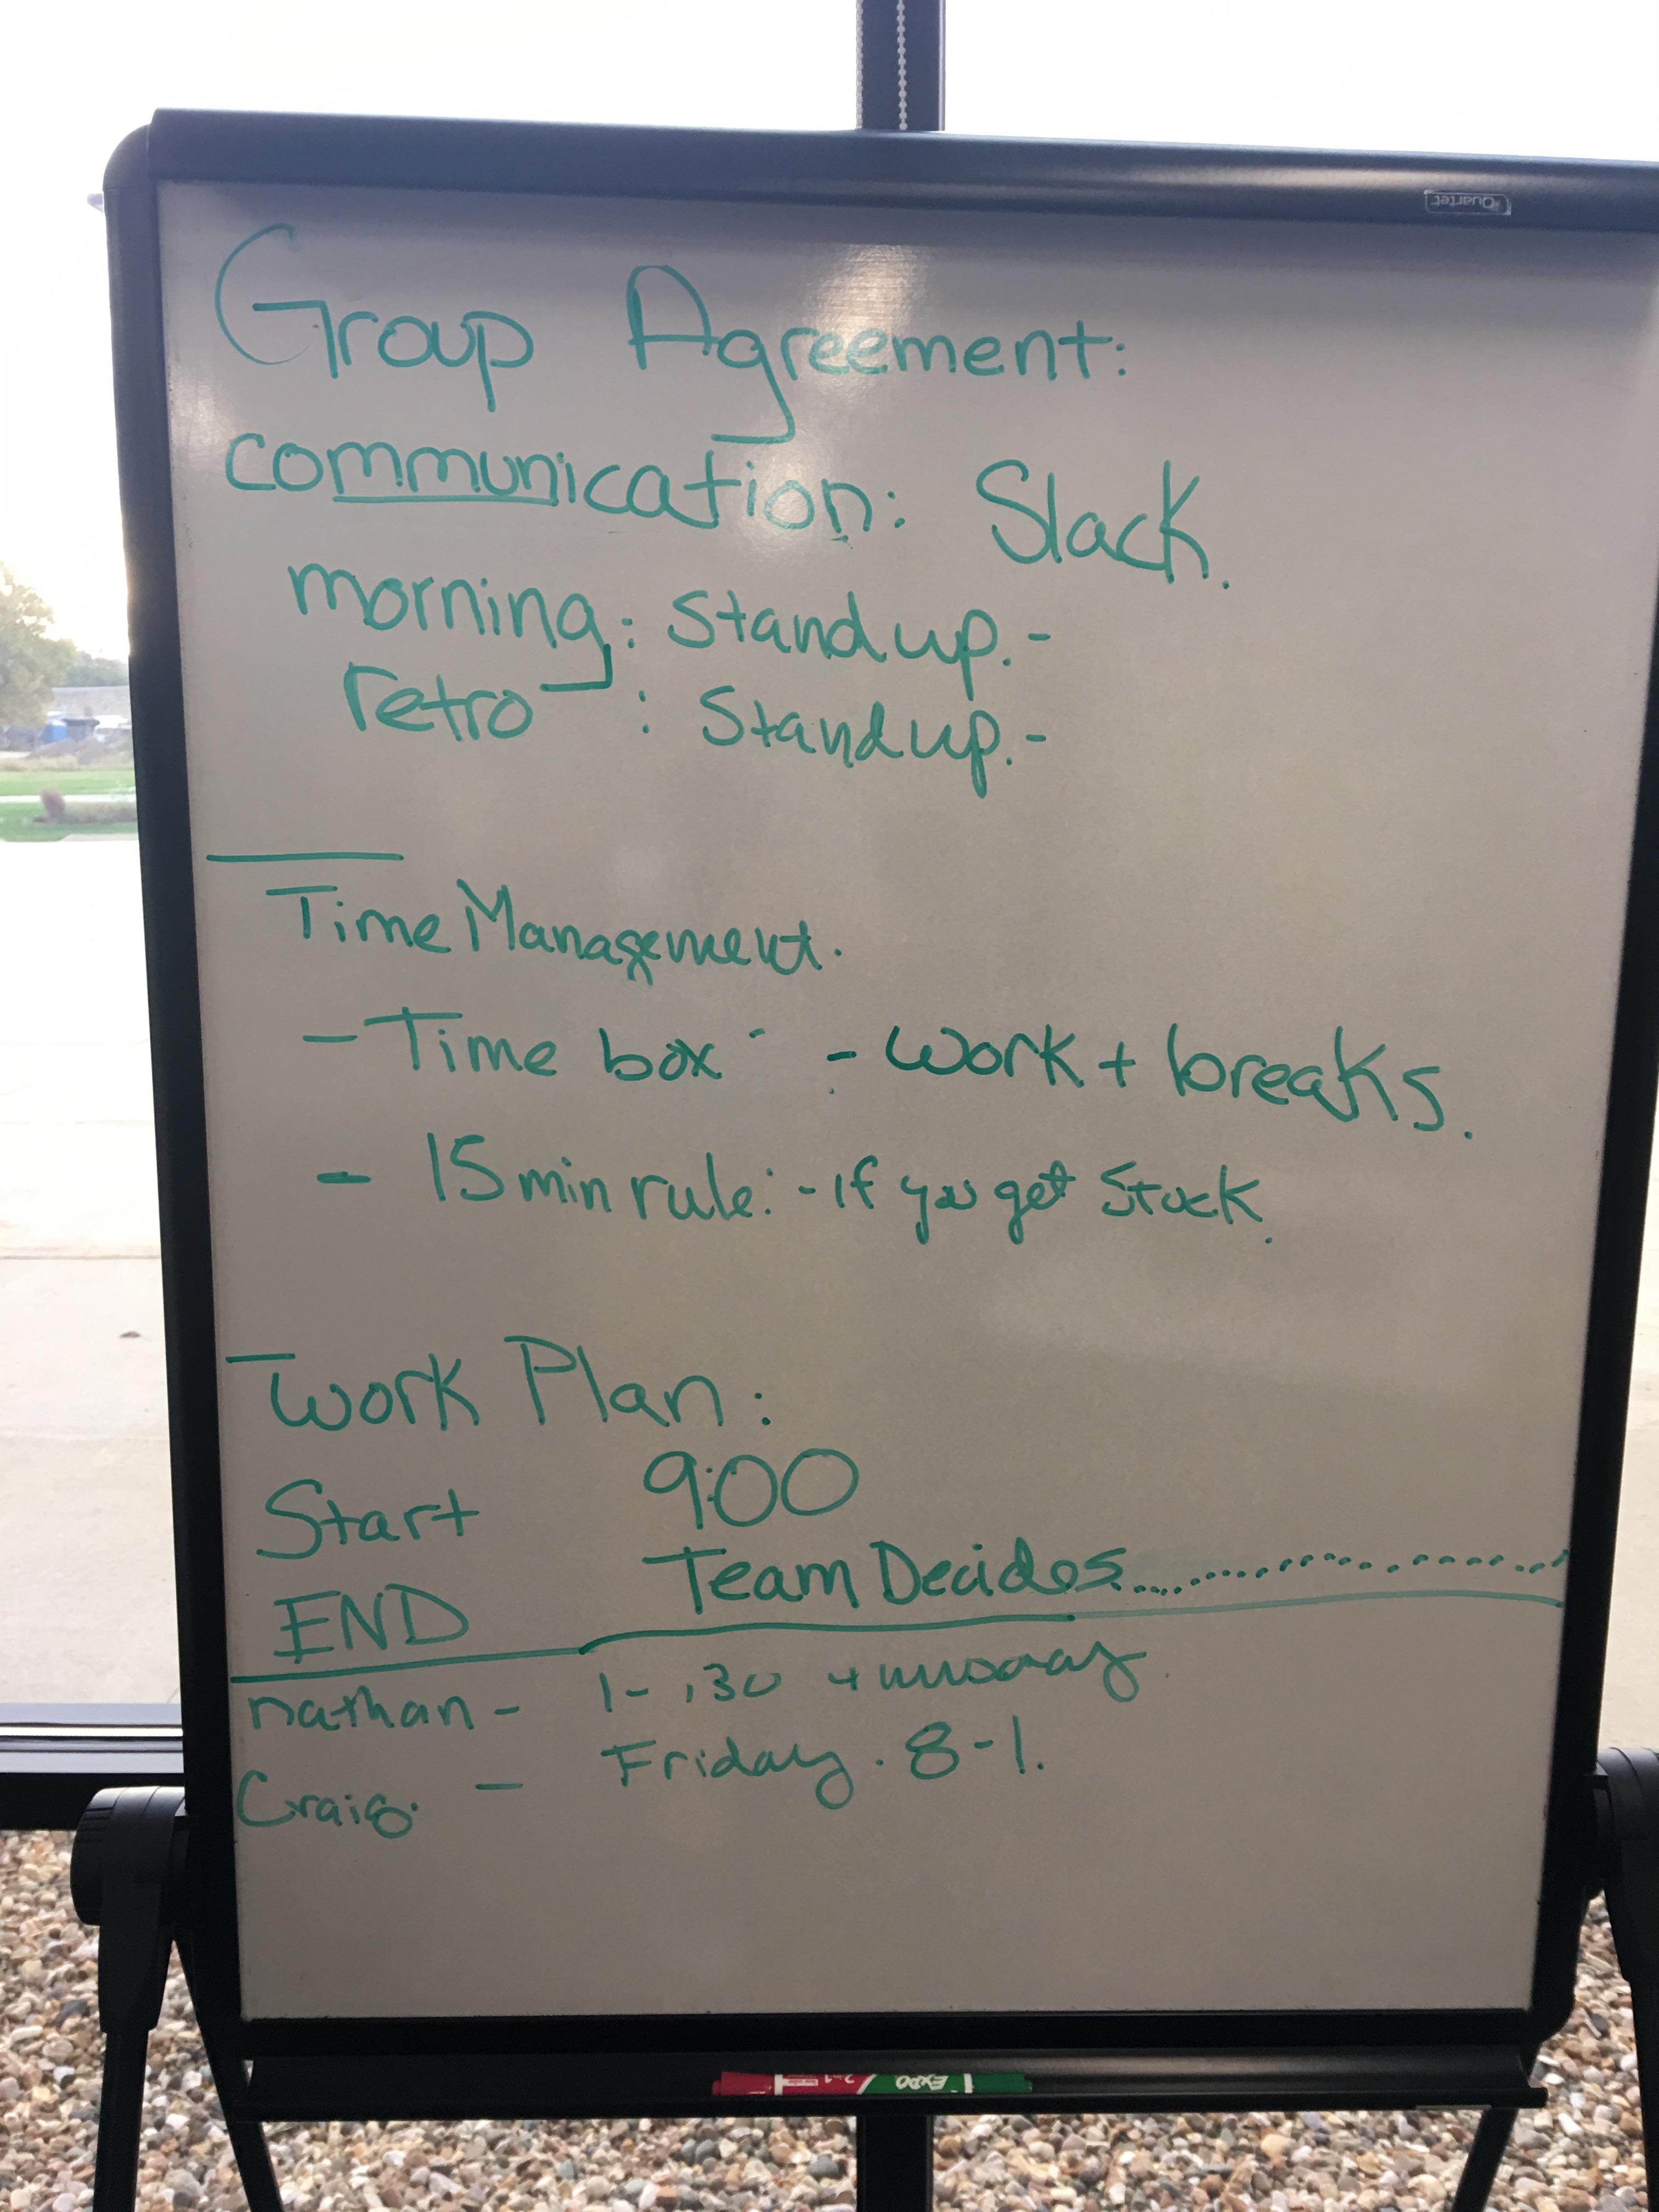 Quartet
Group Agreement:
communication: Slack.
morning: Stand up.-
retro : Standup.-
Time Management.
- Time box - work + breaks.
- 15 min rule: - if you get stuck.
Work Plan:
Start 9:00
END Team Decides..........
nathan - 1-130
Craig. - Friday. 8-1.
EXPO
2 in 1